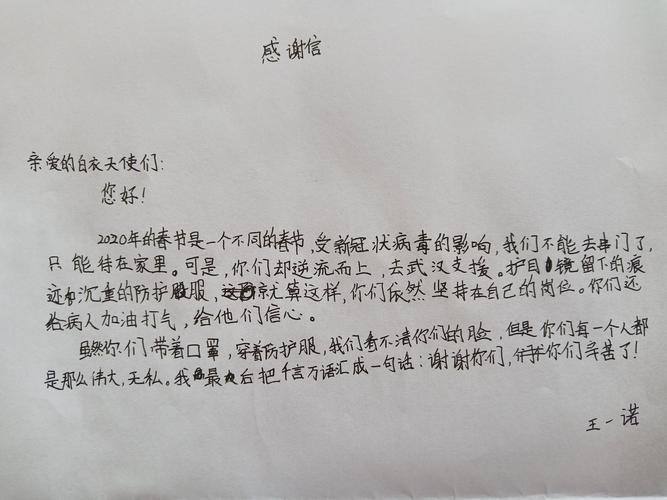 感谢信
亲爱的白衣天使们:
您好!
2020年的春节是一个不同的春节,受新冠状病毒的影响,我们不能去串门了,
只能待在家里。可是,你们却逆流而上,去武汉支援。护目镜留下的痕
迹和沉重的防护服,就算这样,你们依然坚持在自己的岗位。你们还
给病人加油打气,给他们信心。
虽然你们带着口罩,穿着防护服,我们看不清你们的脸,但是你们每一个人都
是那么伟大,无私。我最后把千言万语汇成一句话:谢谢你们,你们辛苦了!
王一诺